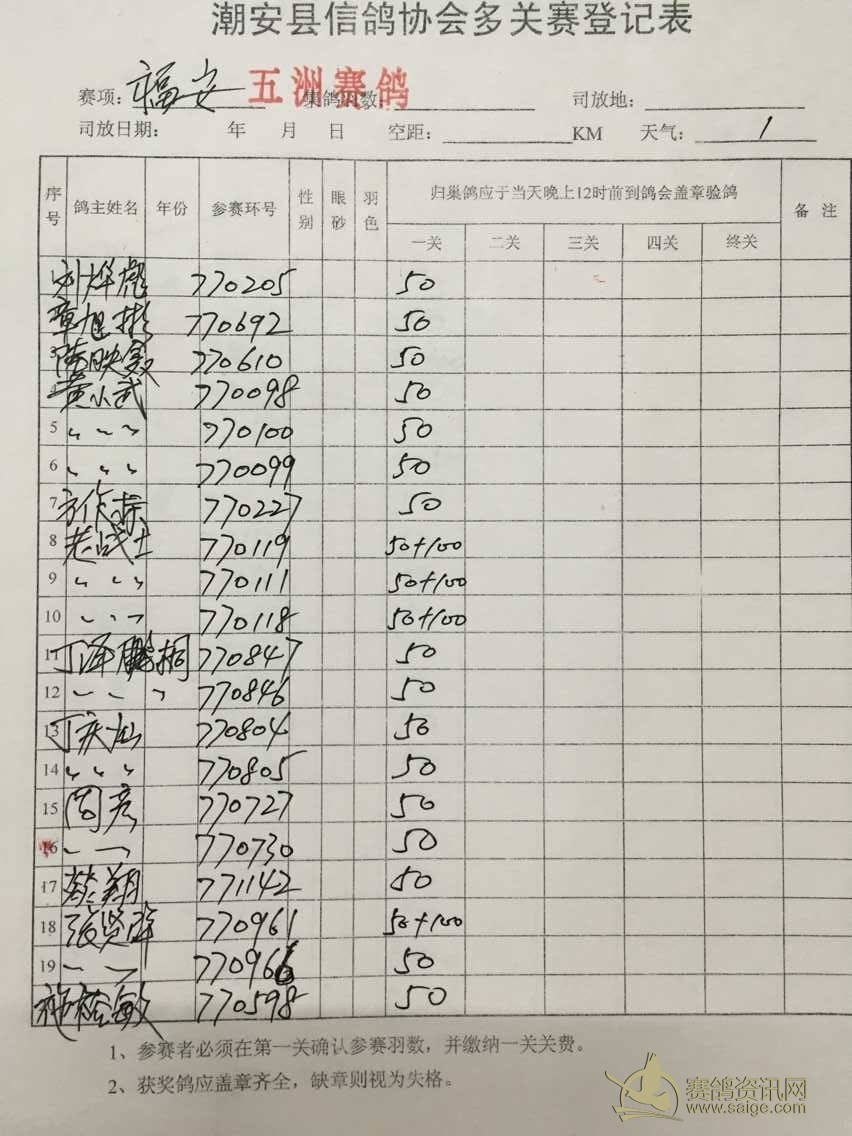 潮安县信鸽协会多关赛登记表
赛项：福安 五洲赛鸽 集鸽羽数： 司放地：
司放日期： 年 月 日 空距： KM 天气： 1
序号 鸽主姓名 年份 参赛环号 性别 眼砂 羽色 归巢鸽应于当天晚上12时前到鸽会盖章验鸽 备 注
一关 二关 三关 四关 终关
770205 50
章旭彬 770692 50
陈映 770610 50
黄小武 770098 50
5 〃 〃 〃 770100 50
6 〃 〃 〃 770099 50
7 方作 770227 50
8 老战士 770119 50+100
9 〃 〃 〃 770111 50+100
10 〃 〃 〃 770118 50+100
11 丁泽鹏桐 770847 50
12 〃 〃 〃 770846 50
13 丁庆灿 770804 50
14 〃 〃 〃 770805 50
15 周彦 770727 50
16 〃 〃 770730 50
17 蔡翔 771142 50
18 张贤 770961 50+100
19 〃 〃 770966 50
敏 770598 50
1、参赛者必须在第一关确认参赛羽数，并缴纳一关关费。
2、获奖鸽应盖章齐全，缺章则视为失格。
赛鸽资讯网
www.saige.com